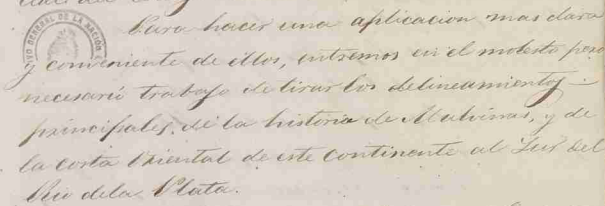 Para hacer una aplicacion mas clara
y conveniente de ellos, entremos en el modesto pero
necesario trabajo de tirar los delineamientos
principales, de la historia de Malvinas, y de
la costa Oriental de este Continente al Sur del
Rio de la Plata.